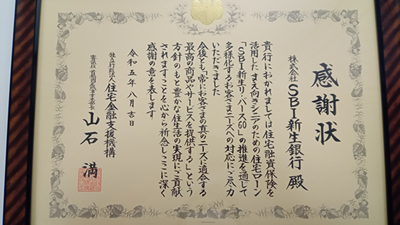 感謝状
株式会社SBI新生銀行殿
貴行におかれましては住宅融資保険を
活用したまえむきシニアのための住宅ローン
「SBI新生リバース60」の推進を通じて
多様化するお客さまニーズへの対応にご尽力
いただきました
今後とも「常にお客さまの真のニーズに適合する
最高の商品やサービスを提供する」という
方針のもと豊かな住生活の実現にご貢献
されますことを心から祈念しここに深く
感謝の意を表します
令和五年八月吉日
独立行政法人住宅金融支援機構
山石満